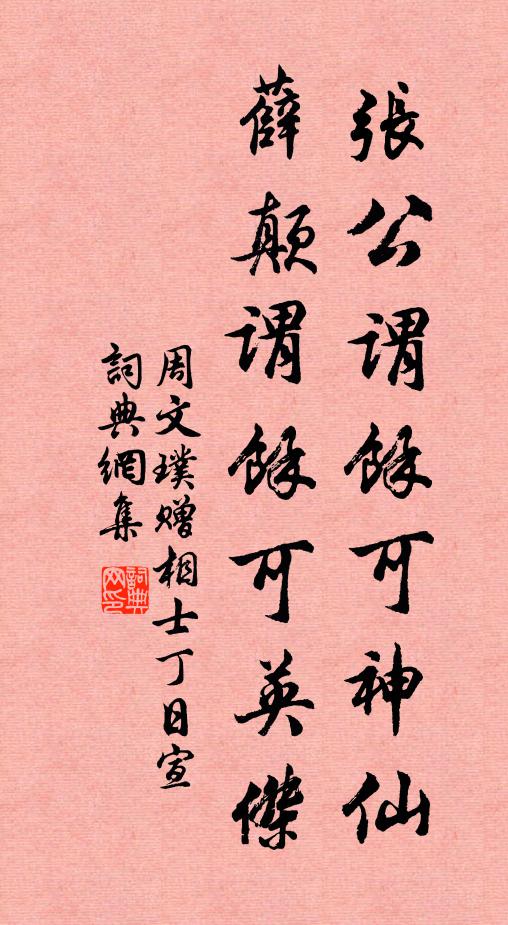 張公謂餘可神仙
薛顛謂餘可英傑
周文璞贈相士丁日宣
詞典網集
詞典网印